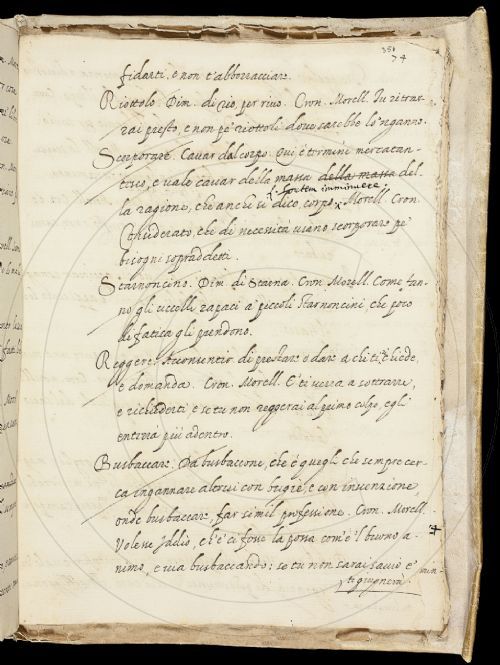 351
74
fidarti, e non t'abborracciare.
Riottolo. Dim. di rio, per rivo. Cron. Morell. Tu ritrar-
rai presto, e non pe' riottoli dove sarebbe lo 'nganno.
Scorporare. Cavar dal corpo. Qui è termine mercatan-
tesco, e vale cavar della massa della massa del-
sortem imminuere
la ragione, che anchi si dice corpo. Morell. Cron.
Considerato, che di necessità usano scorporare pe'
bisogni sopraddetti.
Starnoncino. Dim. di Starna. Cron. Morell. Come fan-
no gli uccelli rapaci a' piccoli starnoncini, che poco
di fatica gli prendono.
Reggere. Acconsentir di prestare o dare a chi ti chiede,
e domanda. Cron. Morell. E' ti verrà a sottrarre,
e richiederti e se tu non reggerai al primo colpo, egli
enterrà più adentro.
Busbaccare. Da busbaccone, che è quegli che sempre cer-
ca ingannare altrui con bugie, e con invenzione,
onde busbaccare, far simil professione. Cron. Morell.
Volesse Iddio, che e' ci fosse la possa com'è 'l buono a-
nimo, e va busbaccando: se tu non sarai savio e'
ti giugnerà